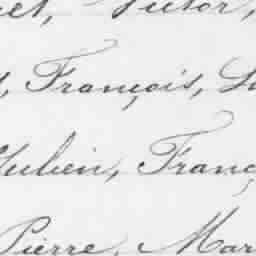 Victor,
François,
Julien, Franç
Pierre, Mar